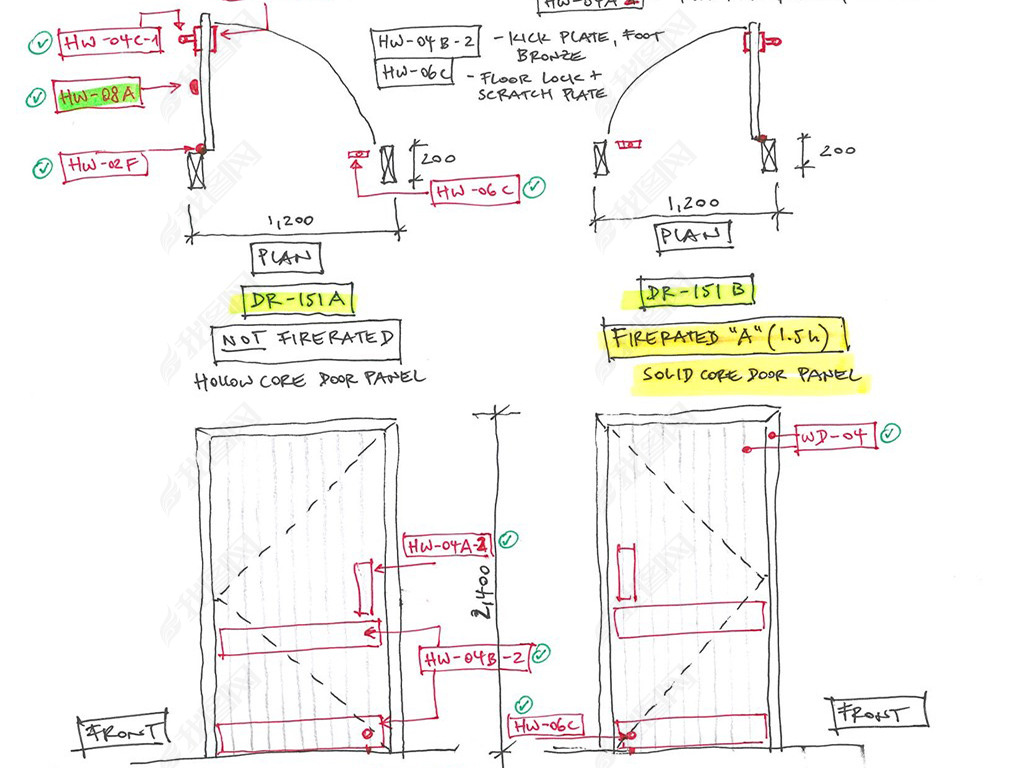 HW-04A
HW-04C-1
HW-04B-2 - KICK PLATE, FOOT
BRONZE
HW-06C - FLOOR LOCK +
SCRATCH PLATE
HW-08A
HW-02F
200
200
HW-06C
1,200
1,200
PLAN
PLAN
DR-151A
DR-151B
NOT FIRERATED
FIRERATED "A" (1.5h)
HOLLOW CORE DOOR PANEL
SOLID CORE DOOR PANEL
WD-04
HW-04A-2
2,400
HW-04B-2
HW-06C
FRONT
FRONT